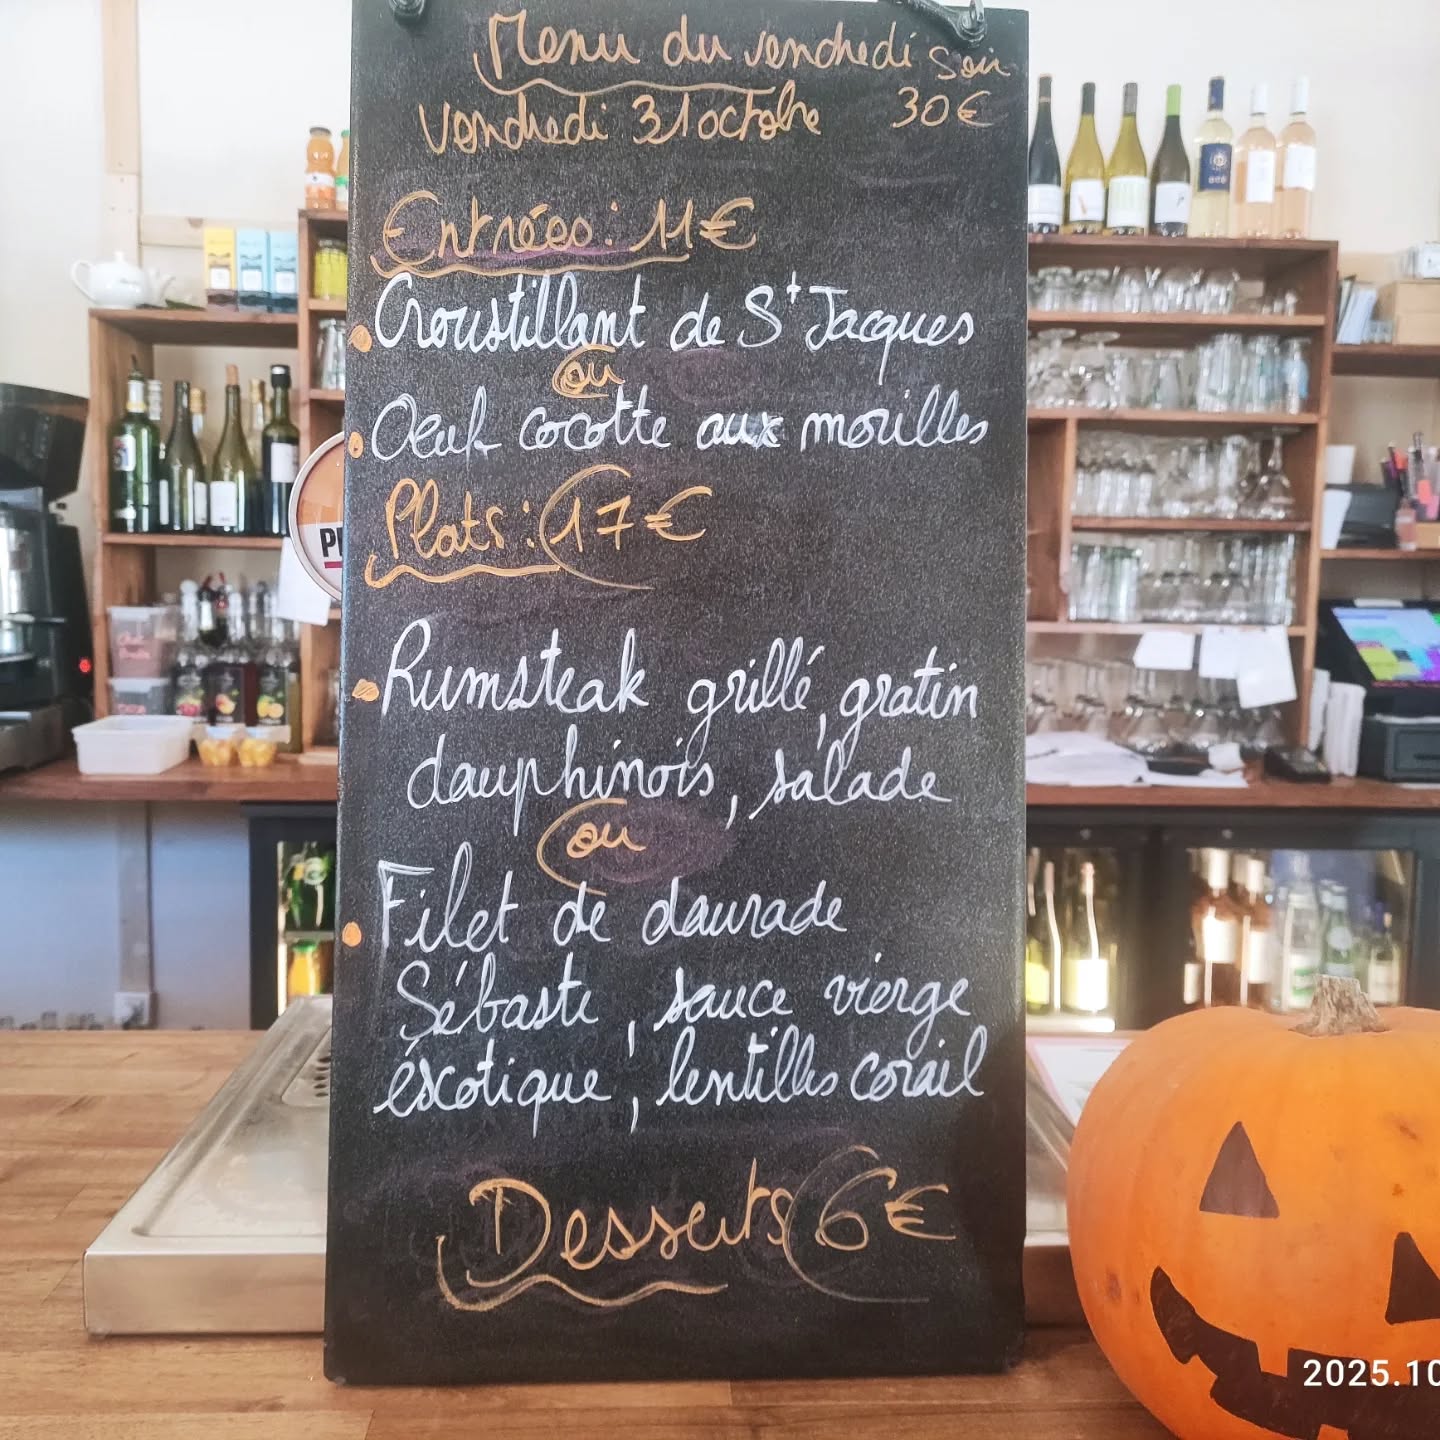 Menu du vendredi soir
vendredi 31 octobre 30€
Entrées : 11€
Croustillant de St Jacques
ou
Oeuf cocotte aux morilles
Plats : 17€
Rumsteak grillé, gratin
dauphinois, salade
ou
Filet de daurade
Sébaste, sauce vierge
éxotique, lentilles corail
Desserts 6€
2025.10